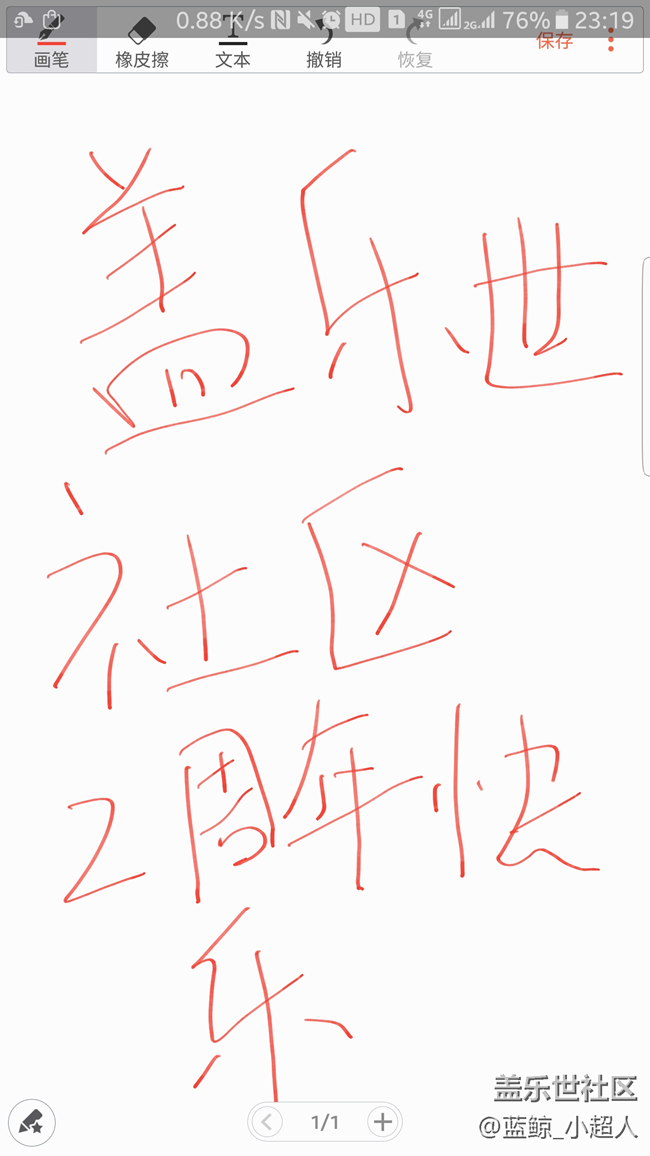 0.88K/s HD 1 4G 2G 76% 23:19
画笔 橡皮擦 T 文本 撤销 恢复 保存
盖乐世
社区
2周年快
乐
1/1
盖乐世社区
@蓝鲸_小超人